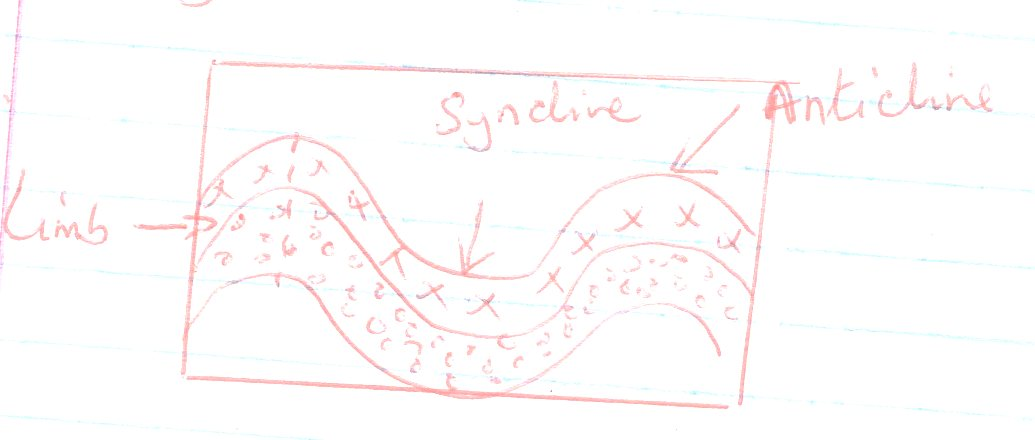 Syncline
Anticline
Limb